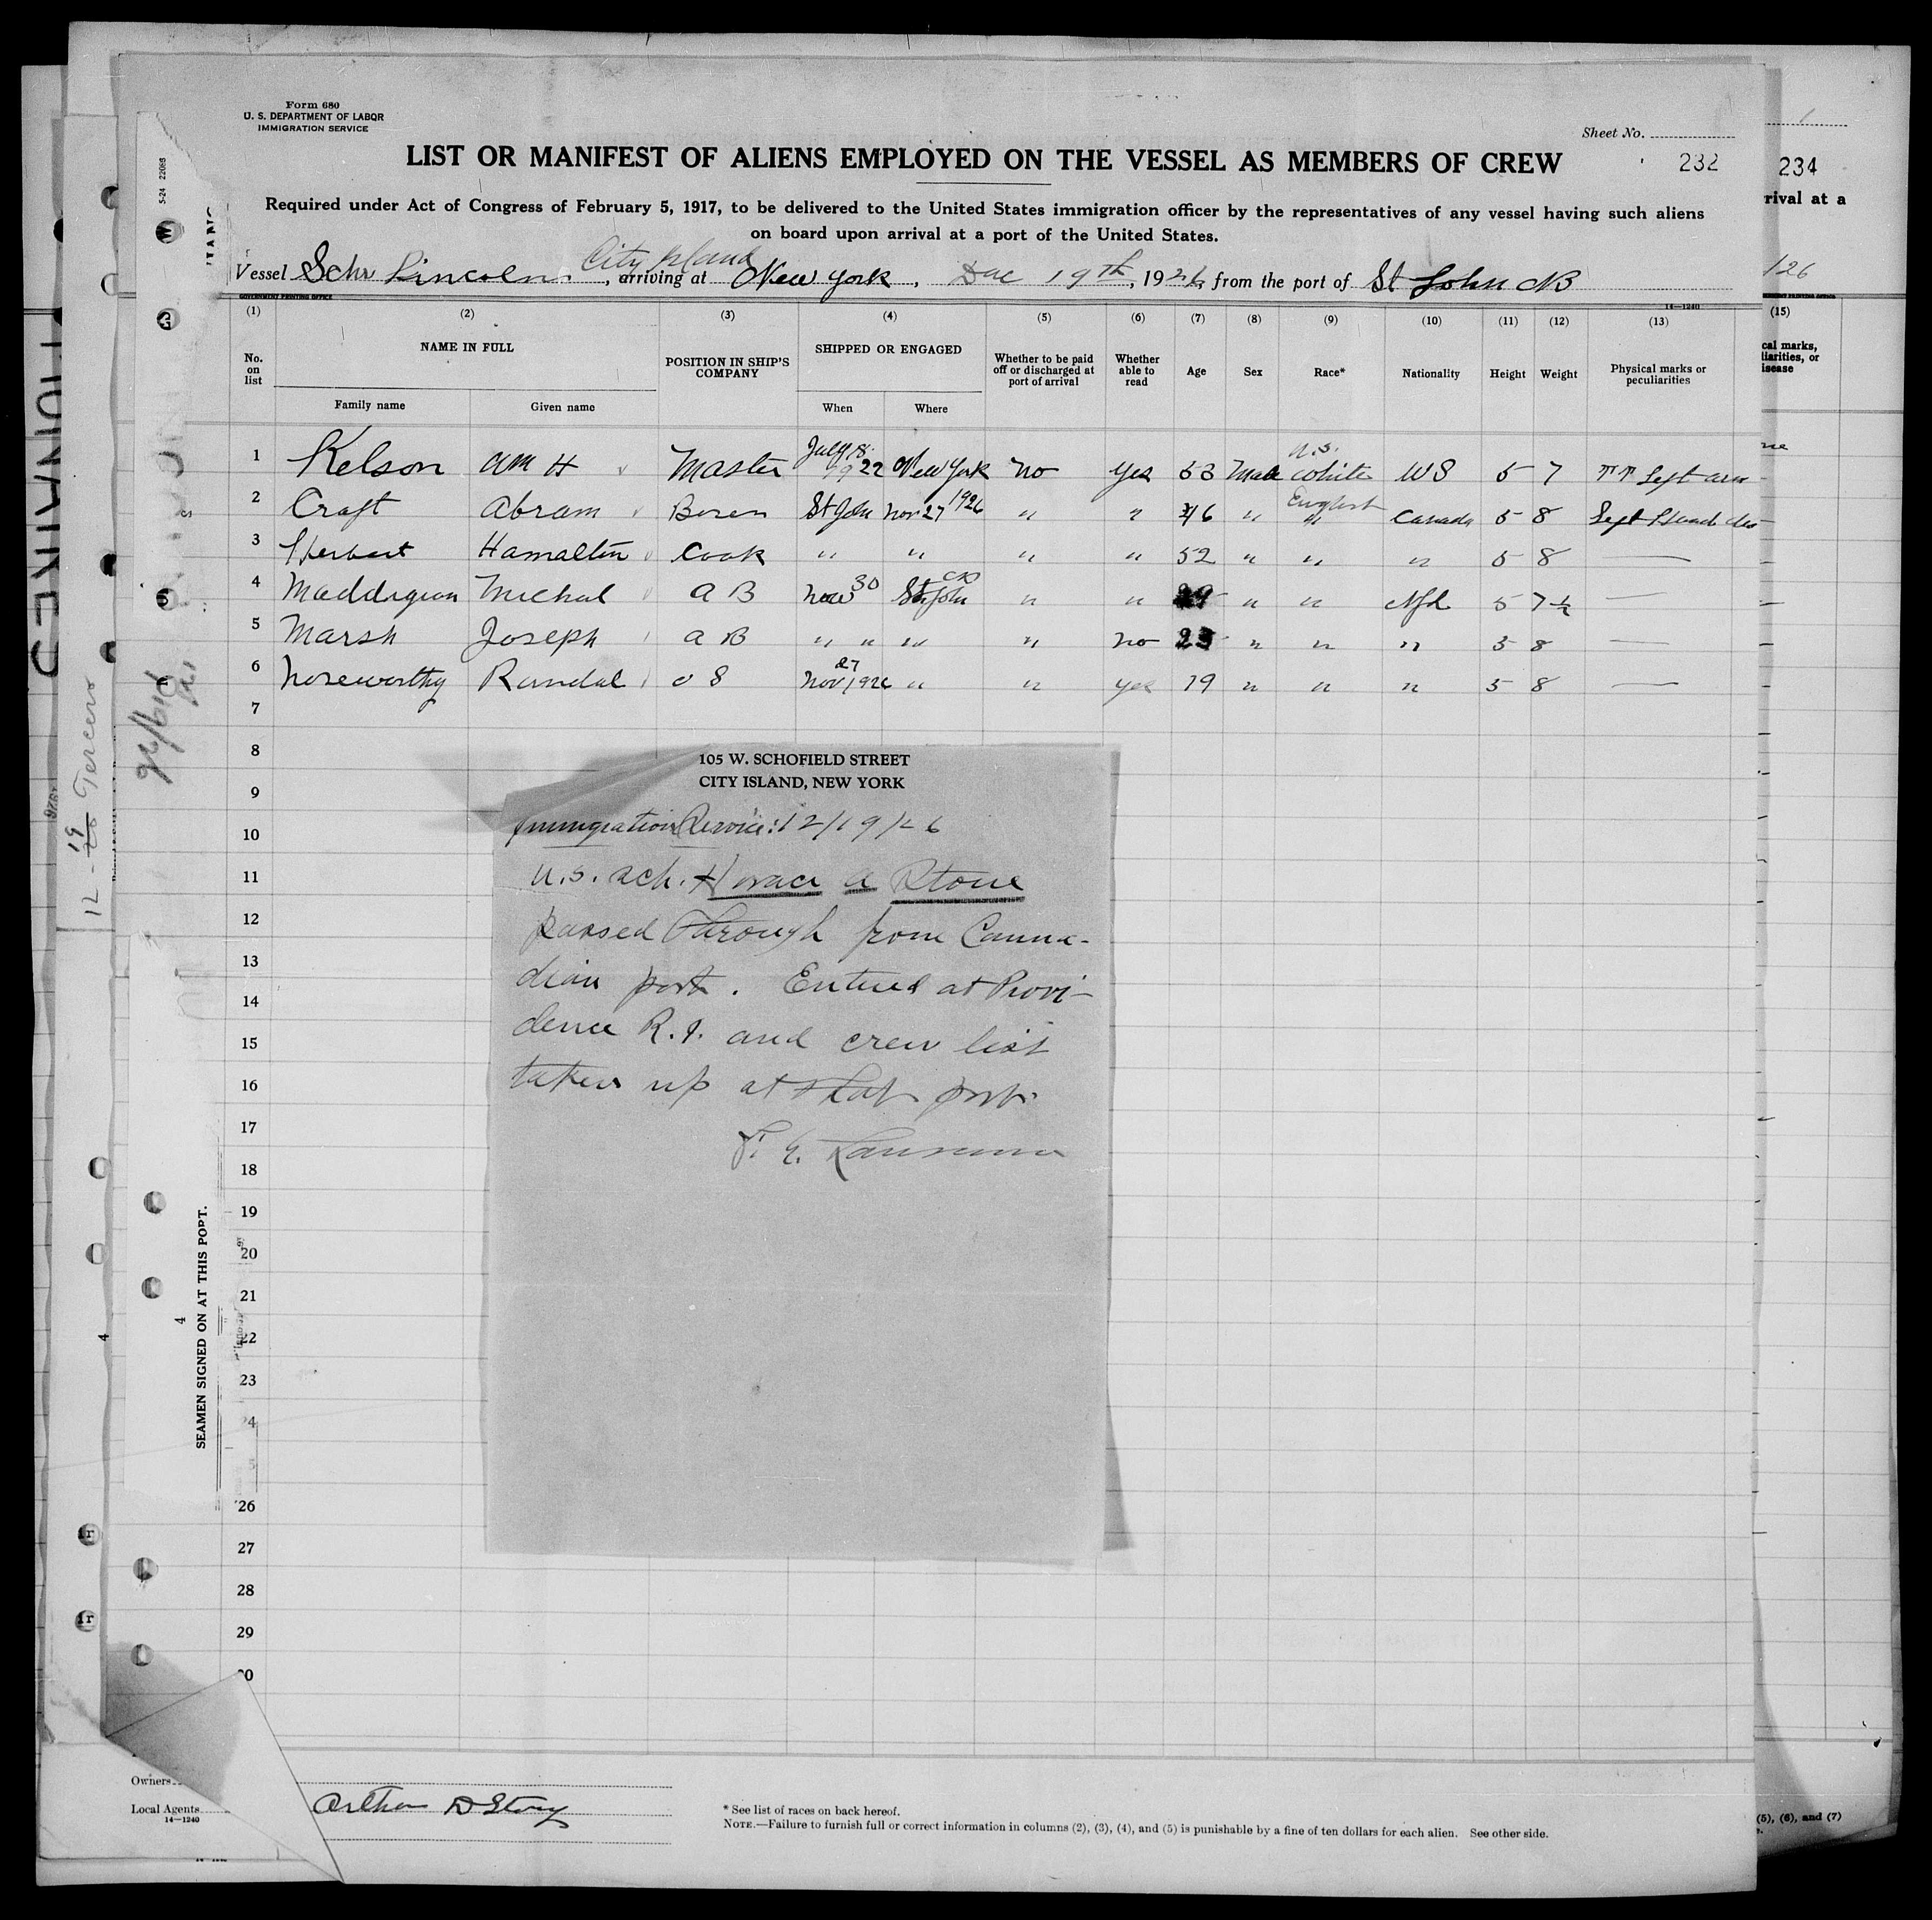 Form 680
U. S. DEPARTMENT OF LABOR
IMMIGRATION SERVICE
Sheet No.
LIST OR MANIFEST OF ALIENS EMPLOYED ON THE VESSEL AS MEMBERS OF CREW
232
234
Required under Act of Congress of February 5, 1917, to be delivered to the United States immigration officer by the representatives of any vessel having such aliens
on board upon arrival at a port of the United States.
rival at a
City Island
Vessel Schr Lincoln, arriving at New York, Dec 19th, 1926, from the port of St John NB
126
GOVERNMENT PRINTING OFFICE
14—1240
(1) (2) (3) (4) (5) (6) (7) (8) (9) (10) (11) (12) (13) (15)
No. on list
NAME IN FULL
Family name Given name
POSITION IN SHIP'S COMPANY
SHIPPED OR ENGAGED
When Where
Whether to be paid off or discharged at port of arrival
Whether able to read
Age
Sex
Race*
Nationality
Height
Weight
Physical marks or peculiarities
cal marks,
liarities, or
isease
1 Kelson Wm H Master July 18 1922 New York No Yes 53 Male U.S. White US 5 7 Left arm
2 Craft Abram Bosen St John Nov 27 1926 " " 46 " English " Canada 5 8 Left Hand
3 Herbert Hamalton Cook " " " " 52 " " " 5 8 —
4 Maddigian Michal A B Nov 30 St John NB " " 29 " " Nfl 5 7½ —
5 Marsh Joseph A B " " " " no 23 " " " 5 8 —
6 Noseworthy Randal O S Nov 27 1926 " " yes 19 " " " 5 8 —
7
8
9
10
11
12
13
14
15
16
17
18
19
20
21
22
23
24
26
27
28
29
105 W. SCHOFIELD STREET
CITY ISLAND, NEW YORK
Immigration Service: 12/19/26
U.S. sch. Horace A Stone
passed through from Canna-
dian port. Entered at Provi-
dence R.I. and crew list
taken up at that port.
SEAMEN SIGNED ON AT THIS PORT.
4
4
5-24 22068
12 - 19 Terceiro
Owners
Local Agents
14—1240
Arthur D Story
* See list of races on back hereof.
NOTE.—Failure to furnish full or correct information in columns (2), (3), (4), and (5) is punishable by a fine of ten dollars for each alien. See other side.
(5), (6), and (7)